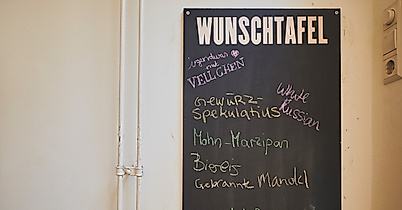 WUNSCHTAFEL
irgendwas
mit
VEILCHEN
White
Russian
GEWÜRZ-
SPEKULATIUS
Mohn-Marzipan
Biereis
Gebrannte Mandel